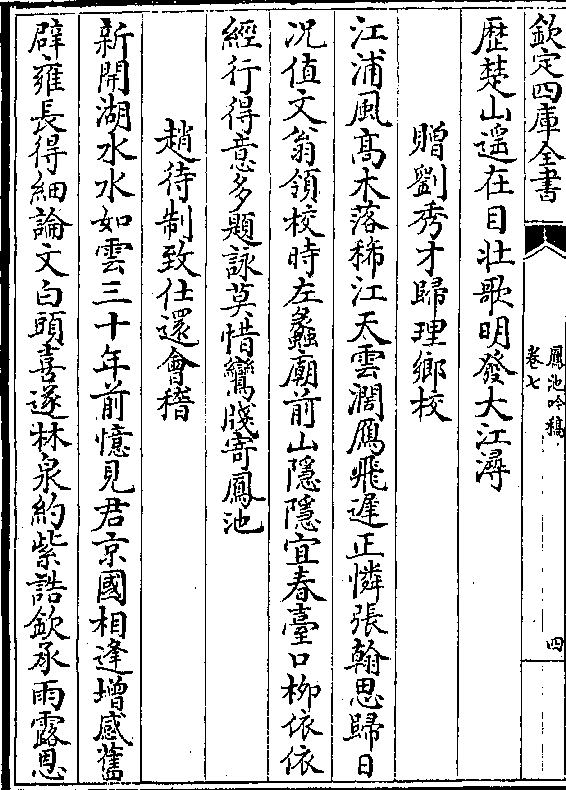 欽定四庫全書
鳳池吟稿
卷七
四
歴楚山遥在目壮歌明發大江潯
贈劉秀才歸理鄉校
江浦風髙木落稀江天雲濶鴈飛遲正憐張翰思歸日
况值文翁領校時左蠡廟前山隱隱宜春臺口柳依依
經行得意多題詠莫惜鸞牋寄鳳池
趙待制致仕還會稽
新開湖水水如雲三十年前憶見君京國相逢增感舊
辟雍長得細論文白頭喜遂林泉約紫誥欽承雨露恩